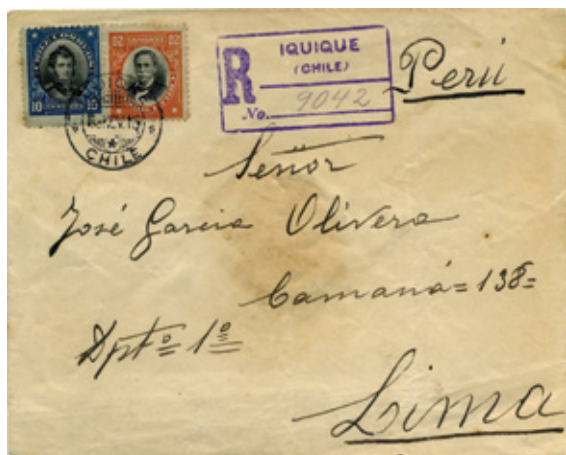 CHILE CORREOS
10 10
82 82
CHILE
R
IQUIQUE
(CHILE)
No. 9042
Perú
Señor
José Garcia Olivera
Camaná = 138 =
Dptº 1º
Lima